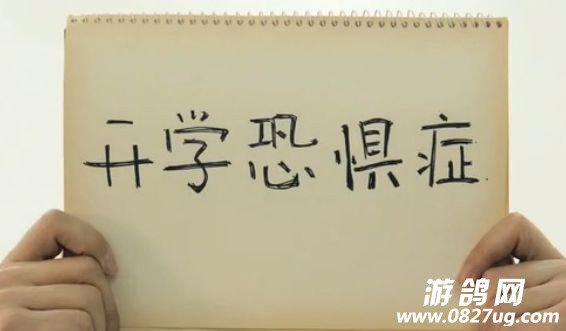 开学恐惧症
游鸽网
www.0827ug.com